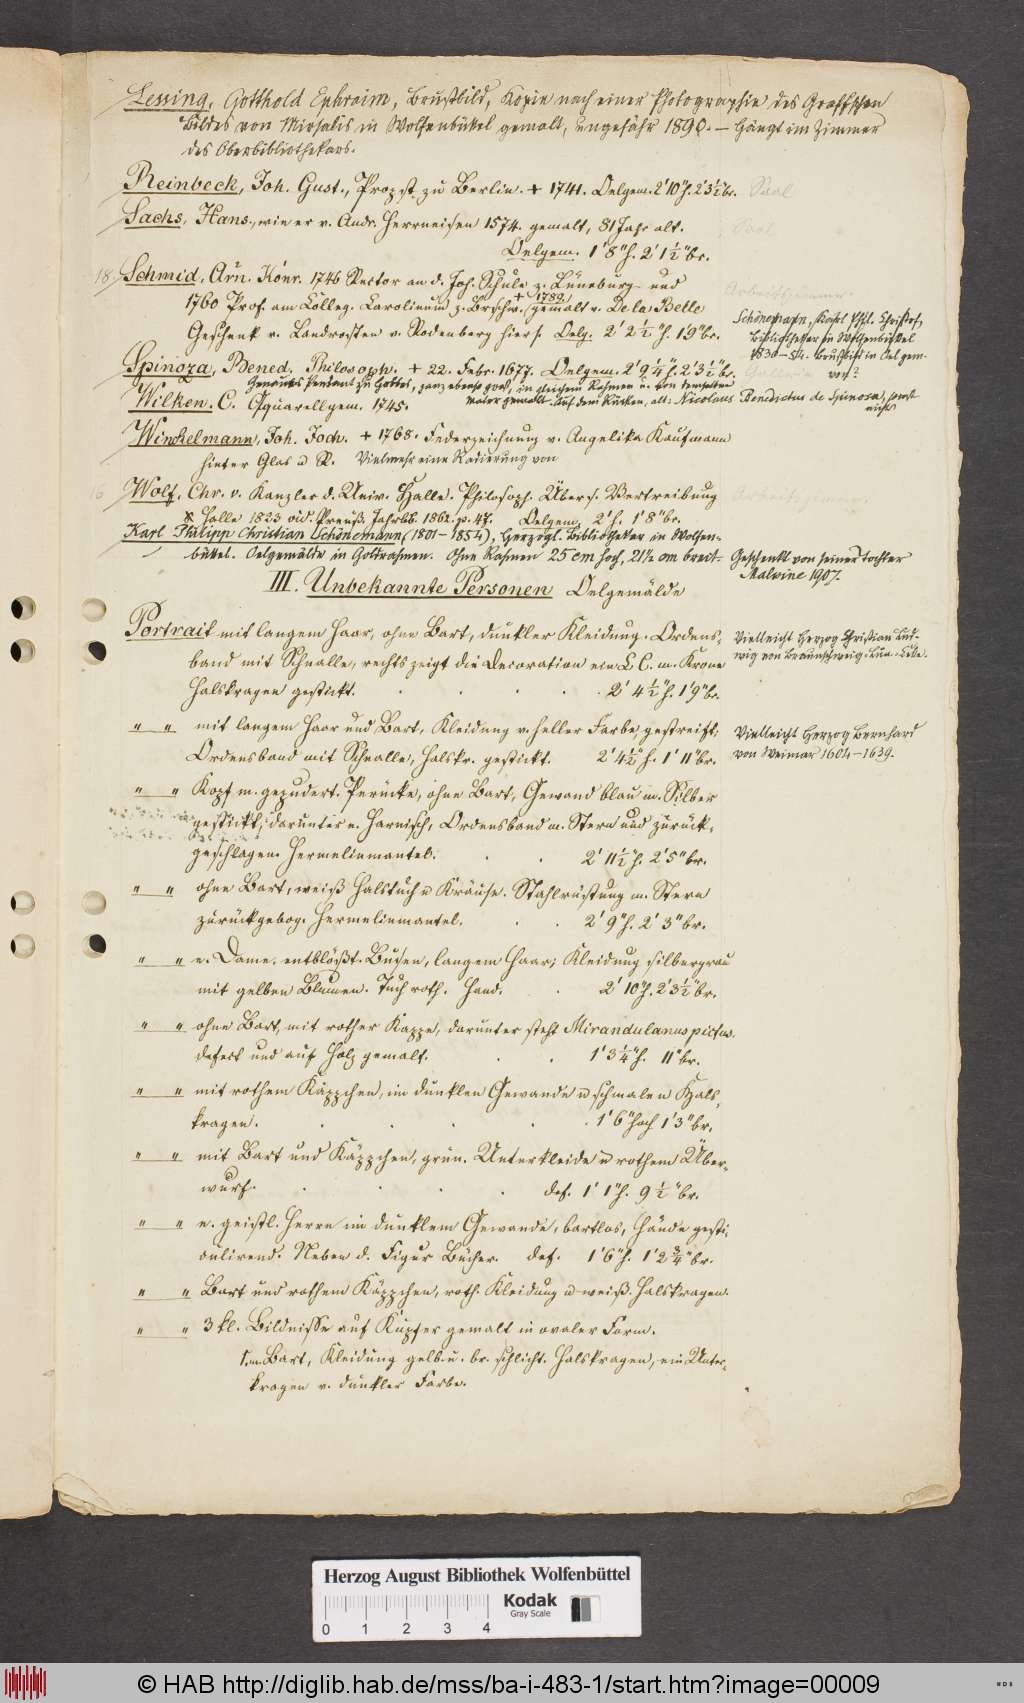 Lessing, Gotthold Ephraim, Brustbild, Kopie nach einer Photographie des Graffschen
Bildes von Mirsalis in Wolfenbüttel gemalt, ungefähr 1890. – Hängt im Zimmer
des Oberbibliothekars.
Reinbeck, Joh. Gust., Propst zu Berlin. + 1741. Oelgem. 2' 10"h. 2' 3½"br. Saal
Sachs, Hans, wie er v. Andr. Herrneisen 1574. gemalt, 81 Jahr alt. Saal
Oelgem. 1' 8"h. 2' 1½"br.
18. Schmid, Arn. Konr. 1746 Rector an d. Joh. Schule z. Lüneburg und Arbeitszimmer.
1760 Prof. am Colleg. Carolinum z. Brschw. + 1789. gemalt v. De la Belle
Geschenk v. Landrosten v. Rodenberg hiers. Oelg. 2' 2½"h. 1' 9"br.
Schönemann, Karl Phil. Christof,
Bibliothekar in Wolfenbüttel
1830–54. Brustbild in Oel gem.
von?
Spinoza, Bened. Philosoph. + 22. Febr. 1677. Oelgem. 2' 9¼"h. 2' 3½"br. Gallerie
Genaues Pendant zu Gottes, ganz ebenso groß, in gleichem Rahmen u. von demselben
Maler gemalt. Auf dem Rücken, alt: Nicolaus Benedictus de Spinosa, sonst
nichts
Wilken, C. Aquarellgem. 1745.
Winckelmann, Joh. Joch. + 1768. Federzeichnung v. Angelika Kaufmann
hinter Glas u R. Vielmehr eine Radierung von
16 Wolf, Chr. v. Kanzler d. Univ. Halle. Philosoph. Übers. Vertreibung Arbeitszimmer.
Halle 1823 vid. Preuß. Jahrbb. 1862. p. 47. Oelgem. 2'h. 1' 8"br.
Karl Philipp Christian Schönemann (1801–1854), Herzogl. Bibliothekar in Wolfen-
büttel. Oelgemälde in Goldrahmen. Ohne Rahmen 25 cm hoch, 21½ cm breit. Geschenkt von seiner Tochter
Malwine 1907.
III. Unbekannte Personen Oelgemälde
Portrait mit langem Haar, ohne Bart, dunkler Kleidung. Ordens-
band mit Schnalle, rechts zeigt die Decoration ein L C. m. Krone
Halskragen gestickt. 2' 4½"h. 1' 9"br.
Vielleicht Herzog Christian Lud-
wig von Braunschweig-Lün.-Celle.
" " mit langem Haar und Bart, Kleidung v. heller Farbe gestreift,
Ordensband mit Schnalle, Halskr. gestickt. 2' 4½"h. 1' 11"br.
Vielleicht Herzog Bernhard
von Weimar 1604–1639.
" " Kopf m. gepudert. Perücke, ohne Bart, Gewand blau m. Silber
gestickt, darunter e. Harnisch, Ordensband m. Stern und zurück-
geschlagen. Hermelinmantel. 2' 11½"h. 2' 5"br.
" " ohne Bart, weiß Halstuch u Krause. Stahlrüstung m. Stern
zurückgebog. Hermelinmantel. 2' 9"h. 2' 3"br.
" " e. Dame, entblößt. Busen, langem Haar; Kleidung silbergrau
mit gelben Blumen. Tuch roth. Hand. 2' 10"h. 2' 3½"br.
" " ohne Bart, mit rother Kappe, darunter steht Mirandulanus pictus.
defect und auf Holz gemalt. 1' 3¼"h. 11"br.
" " mit rothem Käppchen, im dunklen Gewande u schmalen Hals-
kragen. 1' 6"hoch 1' 3"br.
" " mit Bart und Käppchen, grün. Unterkleide u rothem Über-
wurf. def. 1' 1"h. 9½"br.
" " e. geistl. Herrn im dunklem Gewande, bartlos, Hände gesti-
culirend. Neben d. Figur Bücher. def. 1' 6"h. 1' 2¾"br.
" " Bart und rothem Käppchen, roth. Kleidung u weiß. Halskragen.
" " 3 kl. Bildnisse auf Kupfer gemalt in ovaler Form.
1. m. Bart, Kleidung gelb u. br. schlicht. Halskragen, ein Unter-
kragen v. dunkler Farbe.
Herzog August Bibliothek Wolfenbüttel
Kodak
Gray Scale
0 1 2 3 4
© HAB http://diglib.hab.de/mss/ba-i-483-1/start.htm?image=00009